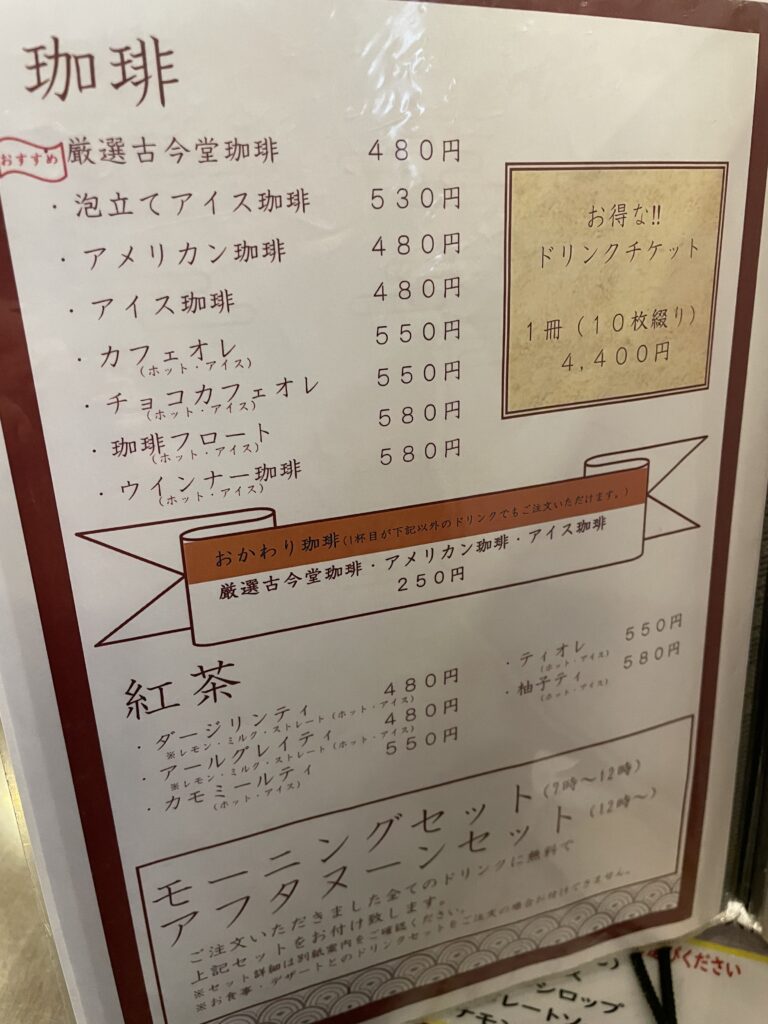 珈琲
おすすめ 厳選古今堂珈琲 480円
・泡立てアイス珈琲 530円
・アメリカン珈琲 480円
・アイス珈琲 480円
・カフェオレ 550円
(ホット・アイス)
・チョコカフェオレ 550円
(ホット・アイス)
・珈琲フロート 580円
(ホット・アイス)
・ウインナー珈琲 580円
(ホット・アイス)
お得な!!
ドリンクチケット
1冊(10枚綴り)
4,400円
おかわり珈琲(1杯目が下記以外のドリンクでもご注文いただけます。)
厳選古今堂珈琲・アメリカン珈琲・アイス珈琲
250円
紅茶
・ダージリンティ 480円
※レモン・ミルク・ストレート(ホット・アイス)
・アールグレイティ 480円
※レモン・ミルク・ストレート(ホット・アイス)
・カモミールティ 550円
(ホット・アイス)
・ティオレ 550円
(ホット・アイス)
・柚子ティ 580円
(ホット・アイス)
モーニングセット(7時~12時)
アフタヌーンセット(12時~)
ご注文いただきました全てのドリンクに無料で
上記セットをお付け致します。
※セット詳細は別紙案内をご確認ください。
※お食事・デザートとのドリンクセットをご注文の場合お付けできません。
びください
シロップ